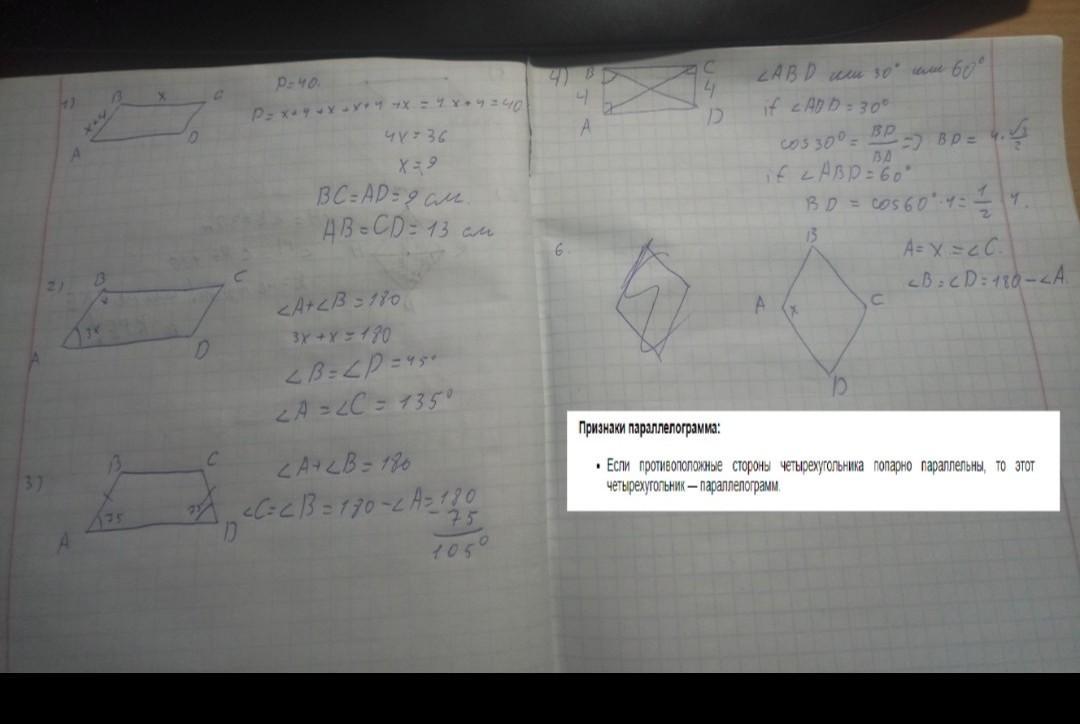 1)
B x C
x+4
A D
P=40.
P=x+4+x+x+4+x=4x+4=40
4x=36
x=9
BC=AD=9 см.
AB=CD=13 см
2)
B C
x
3x
A D
∠A+∠B=180
3x+x=180
∠B=∠D=45°
∠A=∠C=135°
3)
B C
75 75
A D
∠A+∠B=180
∠C=∠B=180-∠A=180
-75
105°
4)
B C
4 4
A D
∠ABD или 30° или 60°
if ∠ABD=30°
cos30°=BD/BA=> BD=4·√3/2
if ∠ABD=60°
BD=cos60°·4=1/2 4.
6.
B
A x C
D
A=x=∠C.
∠B=∠D=180-∠A.
Признаки параллелограмма:
• Если противоположные стороны четырехугольника попарно параллельны, то этот
четырехугольник — параллелограмм.